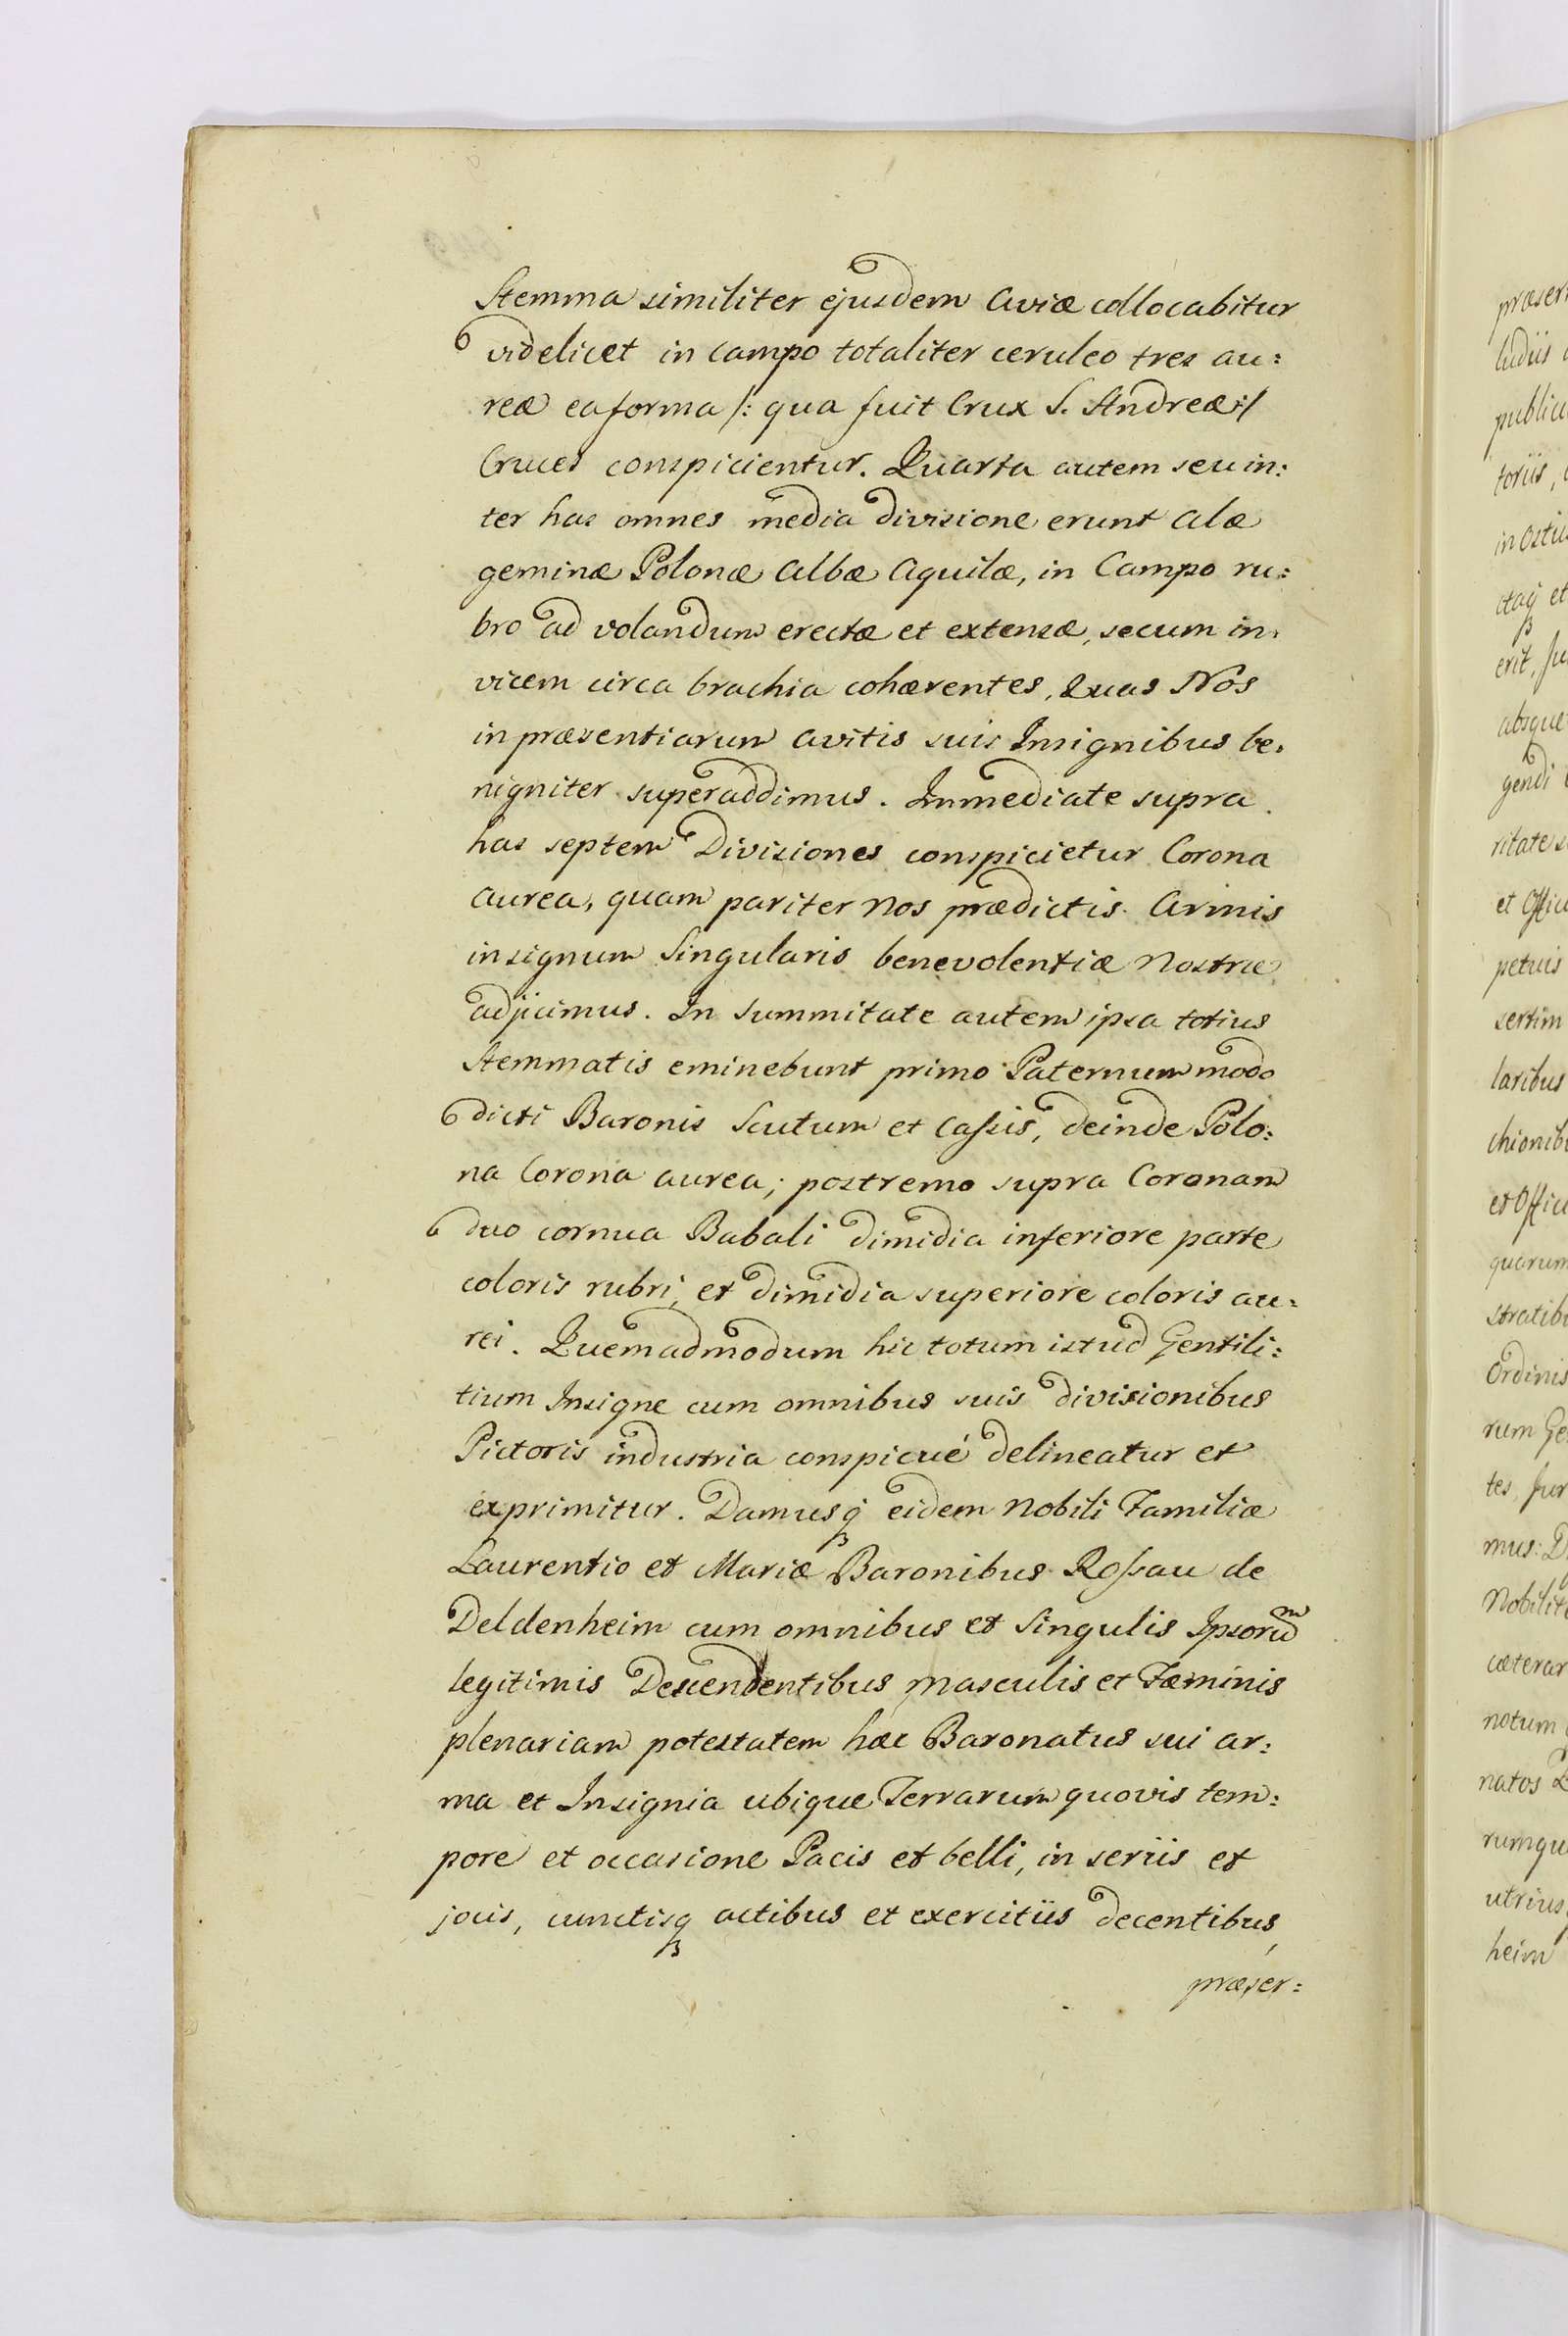 Stemma similiter ejusdem Aviæ collocabitur
videlicet in campo totaliter ceruleo tres au:
reæ ea forma /: qua fuit Crux S. Andreæ :/
Cruces conspicientur. Quarta autem seu in:
ter has omnes media divisione erunt Alæ
geminæ Polonæ Albæ Aquilæ, in Campo ru:
bro ad volandum erectæ et extensæ, secum in:
vicem circa brachia cohærentes, Quas Nos
in præsentiarum avitis suis Insignibus be:
nigniter superaddimus. Immediate supra
has septem Divisiones conspicietur Corona
aurea, quam pariter Nos prædictis Armis
in signum Singularis benevolentiæ Nostræ
adjicimus. In Summitate autem ipsa totius
Stemmatis eminebunt primo Paternum modo
dicti Baronis Scutum et Cassis, deinde Polo:
na Corona aurea; postremo supra Coronam
duo cornua Babali dimidia inferiore parte
coloris rubri, et dimidia superiore coloris au:
rei. Quemadmodum hic totum istud Gentili:
tium Insigne cum omnibus suis divisionibus
Pictoris industria conspicué delineatur et
exprimitur. Damusq eidem Nobili Familiæ
Laurentio et Mariæ Baronibus Rossau de
Deldenheim cum omnibus et Singulis Ipsorum
legitimis Descendentibus Masculis et Fæminis
plenariam potestatem hæc Baronatus sui ar:
ma et Insignia ubique Terrarum quovis tem:
pore et occasione Pacis et belli, in seriis et
jocis, cunctisq actibus et exercitiis decentibus,
præser:
ludiis
publicu
toriis,
in Ostiis
erit, 
absque
gendi
ritate
et Offici
petuis
sertim
laribus
chionib
et Offici
quorum
stratib
Ordinis
rum Ge
tes
mus: D
Nobilit
cæterar
notum
natos
rumqu
utrius
heim